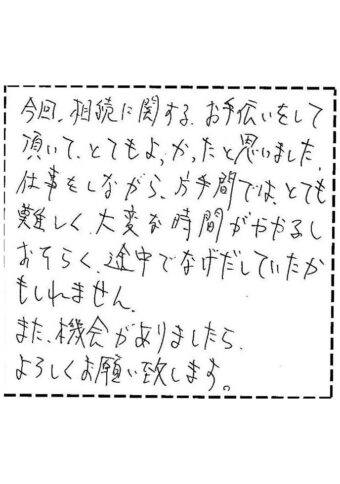 今回、相続に関する、お手伝いをして
頂いて、とてもよかったと思いました。
仕事をしながら、片手間では、とても
難しく、大変な時間がかかるし
おそらく、途中でなげだしていたか
もしれません。
また、機会がありましたら、
よろしくお願い致します。